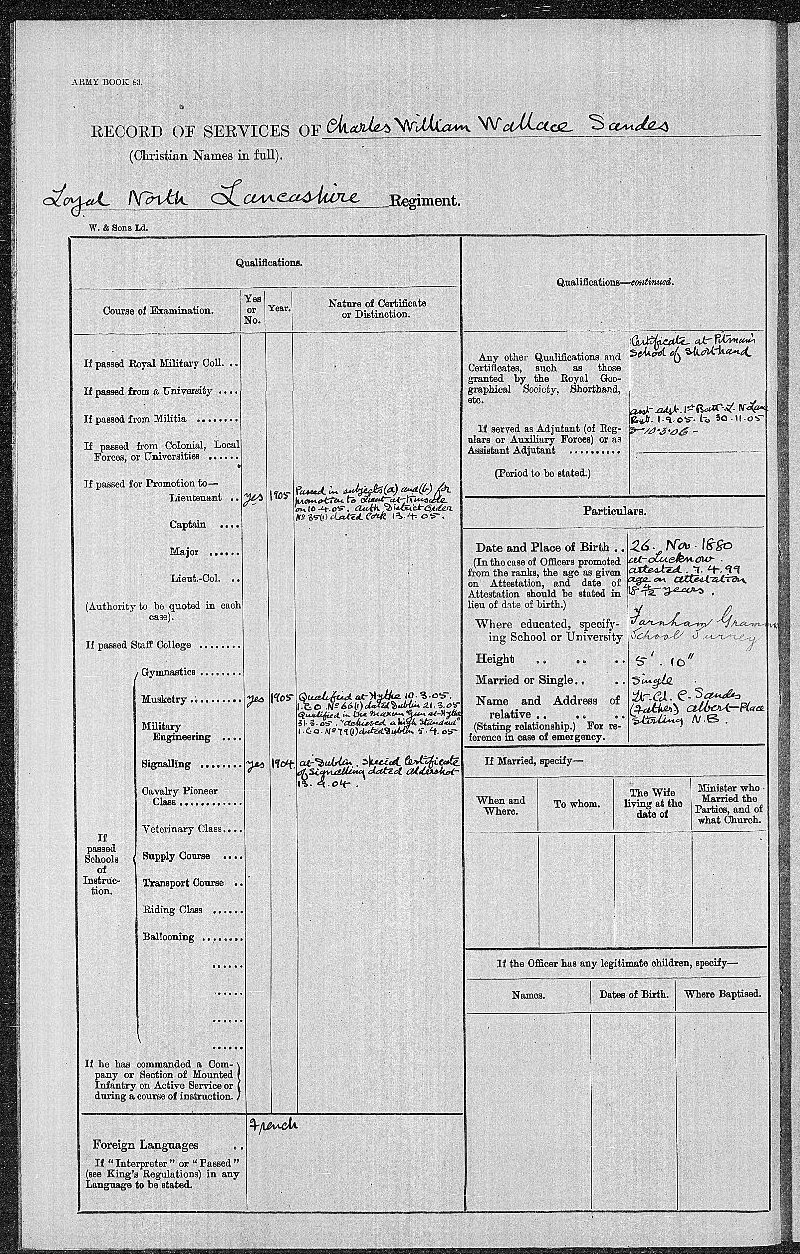 ARMY BOOK 83.
RECORD OF SERVICES OF Charles William Wallace Sandes
(Christian Names in full).
Loyal North Lancashire Regiment.
W. & Sons Ld.
Qualifications.
Course of Examination.
Yes or No.
Year.
Nature of Certificate
or Distinction.
If passed Royal Military Coll. ..
If passed from a University ....
If passed from Militia ........
If passed from Colonial, Local
Forces, or Universities ......
If passed for Promotion to—
Lieutenant .. yes 1905 Passed in subjects (a) and (b) for
promotion to Lieut at
on 10-4-05. Auth District Order
No 35(1) dated Cork 13.4.05.
Captain ....
Major ......
Lieut.-Col. ..
(Authority to be quoted in each
case).
If passed Staff College ........
If
passed
Schools
of
Instruc-
tion.
Gymnastics ........
Musketry .......... yes 1905 Qualified at Hythe 10.3.05.
I.C.O. No 66(1) dated Dublin 21.3.05
Qualified in the Maxim Gun at Hythe
31.3.05. "achieved a high standard"
I.C.O. No 79(1) dated Dublin 5.4.05
Military
Engineering ....
Signalling ........ yes 1904 at Dublin. Special Certificate
of Signalling dated Aldershot
13.9.04.
Cavalry Pioneer
Class ............
Veterinary Class....
Supply Course ....
Transport Course ..
Riding Class ......
Ballooning ........
......
......
......
......
If he has commanded a Com-
pany or Section of Mounted
Infantry on Active Service or
during a course of instruction.
Foreign Languages .. French
If "Interpreter" or "Passed"
(see King's Regulations) in any
Language to be stated.
Qualifications—continued.
Any other Qualifications and
Certificates, such as those
granted by the Royal Geo-
graphical Society, Shorthand,
etc.
Certificate at Pitman's
School of Shorthand
If served as Adjutant (of Reg-
ulars or Auxiliary Forces) or as
Assistant Adjutant ..........
(Period to be stated.)
asst adjt. 1st Batt. L. N. Lanc
Regt. 1.9.05. to 30.11.05
10.3.06 -
Particulars.
Date and Place of Birth .. 26. Nov 1880
at Lucknow
(In the case of Officers promoted
from the ranks, the age as given
on Attestation, and date of
Attestation should be stated in
lieu of date of birth.)
attested. 7.4.99
age on attestation
18 4/12 years.
Where educated, specify-
ing School or University
Farnham Gramm
School Surrey
Height .. .. .. 5'. 10"
Married or Single.. .. Single
Name and Address of
relative .. .. ..
(Stating relationship.) For re-
ference in case of emergency.
Lt. Col. C. Sandes
(Father) Albert Place
Stirling N.B.
If Married, specify—
When and
Where.
To whom.
The Wife
living at the
date of
Minister who
Married the
Parties, and of
what Church.
If the Officer has any legitimate children, specify—
Names.
Dates of Birth.
Where Baptised.